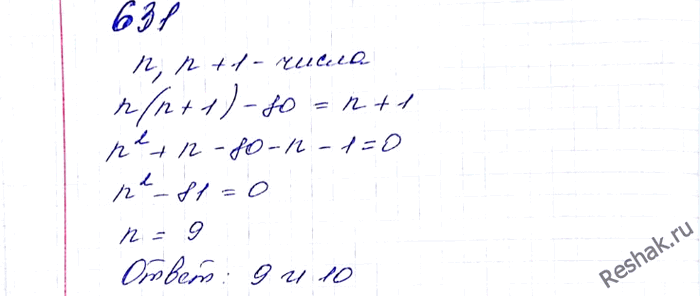 631
n, n + 1 - числа
n(n+1) - 80 = n + 1
n² + n - 80 - n - 1 = 0
n² - 81 = 0
n = 9
Ответ: 9 и 10
Reshak.ru